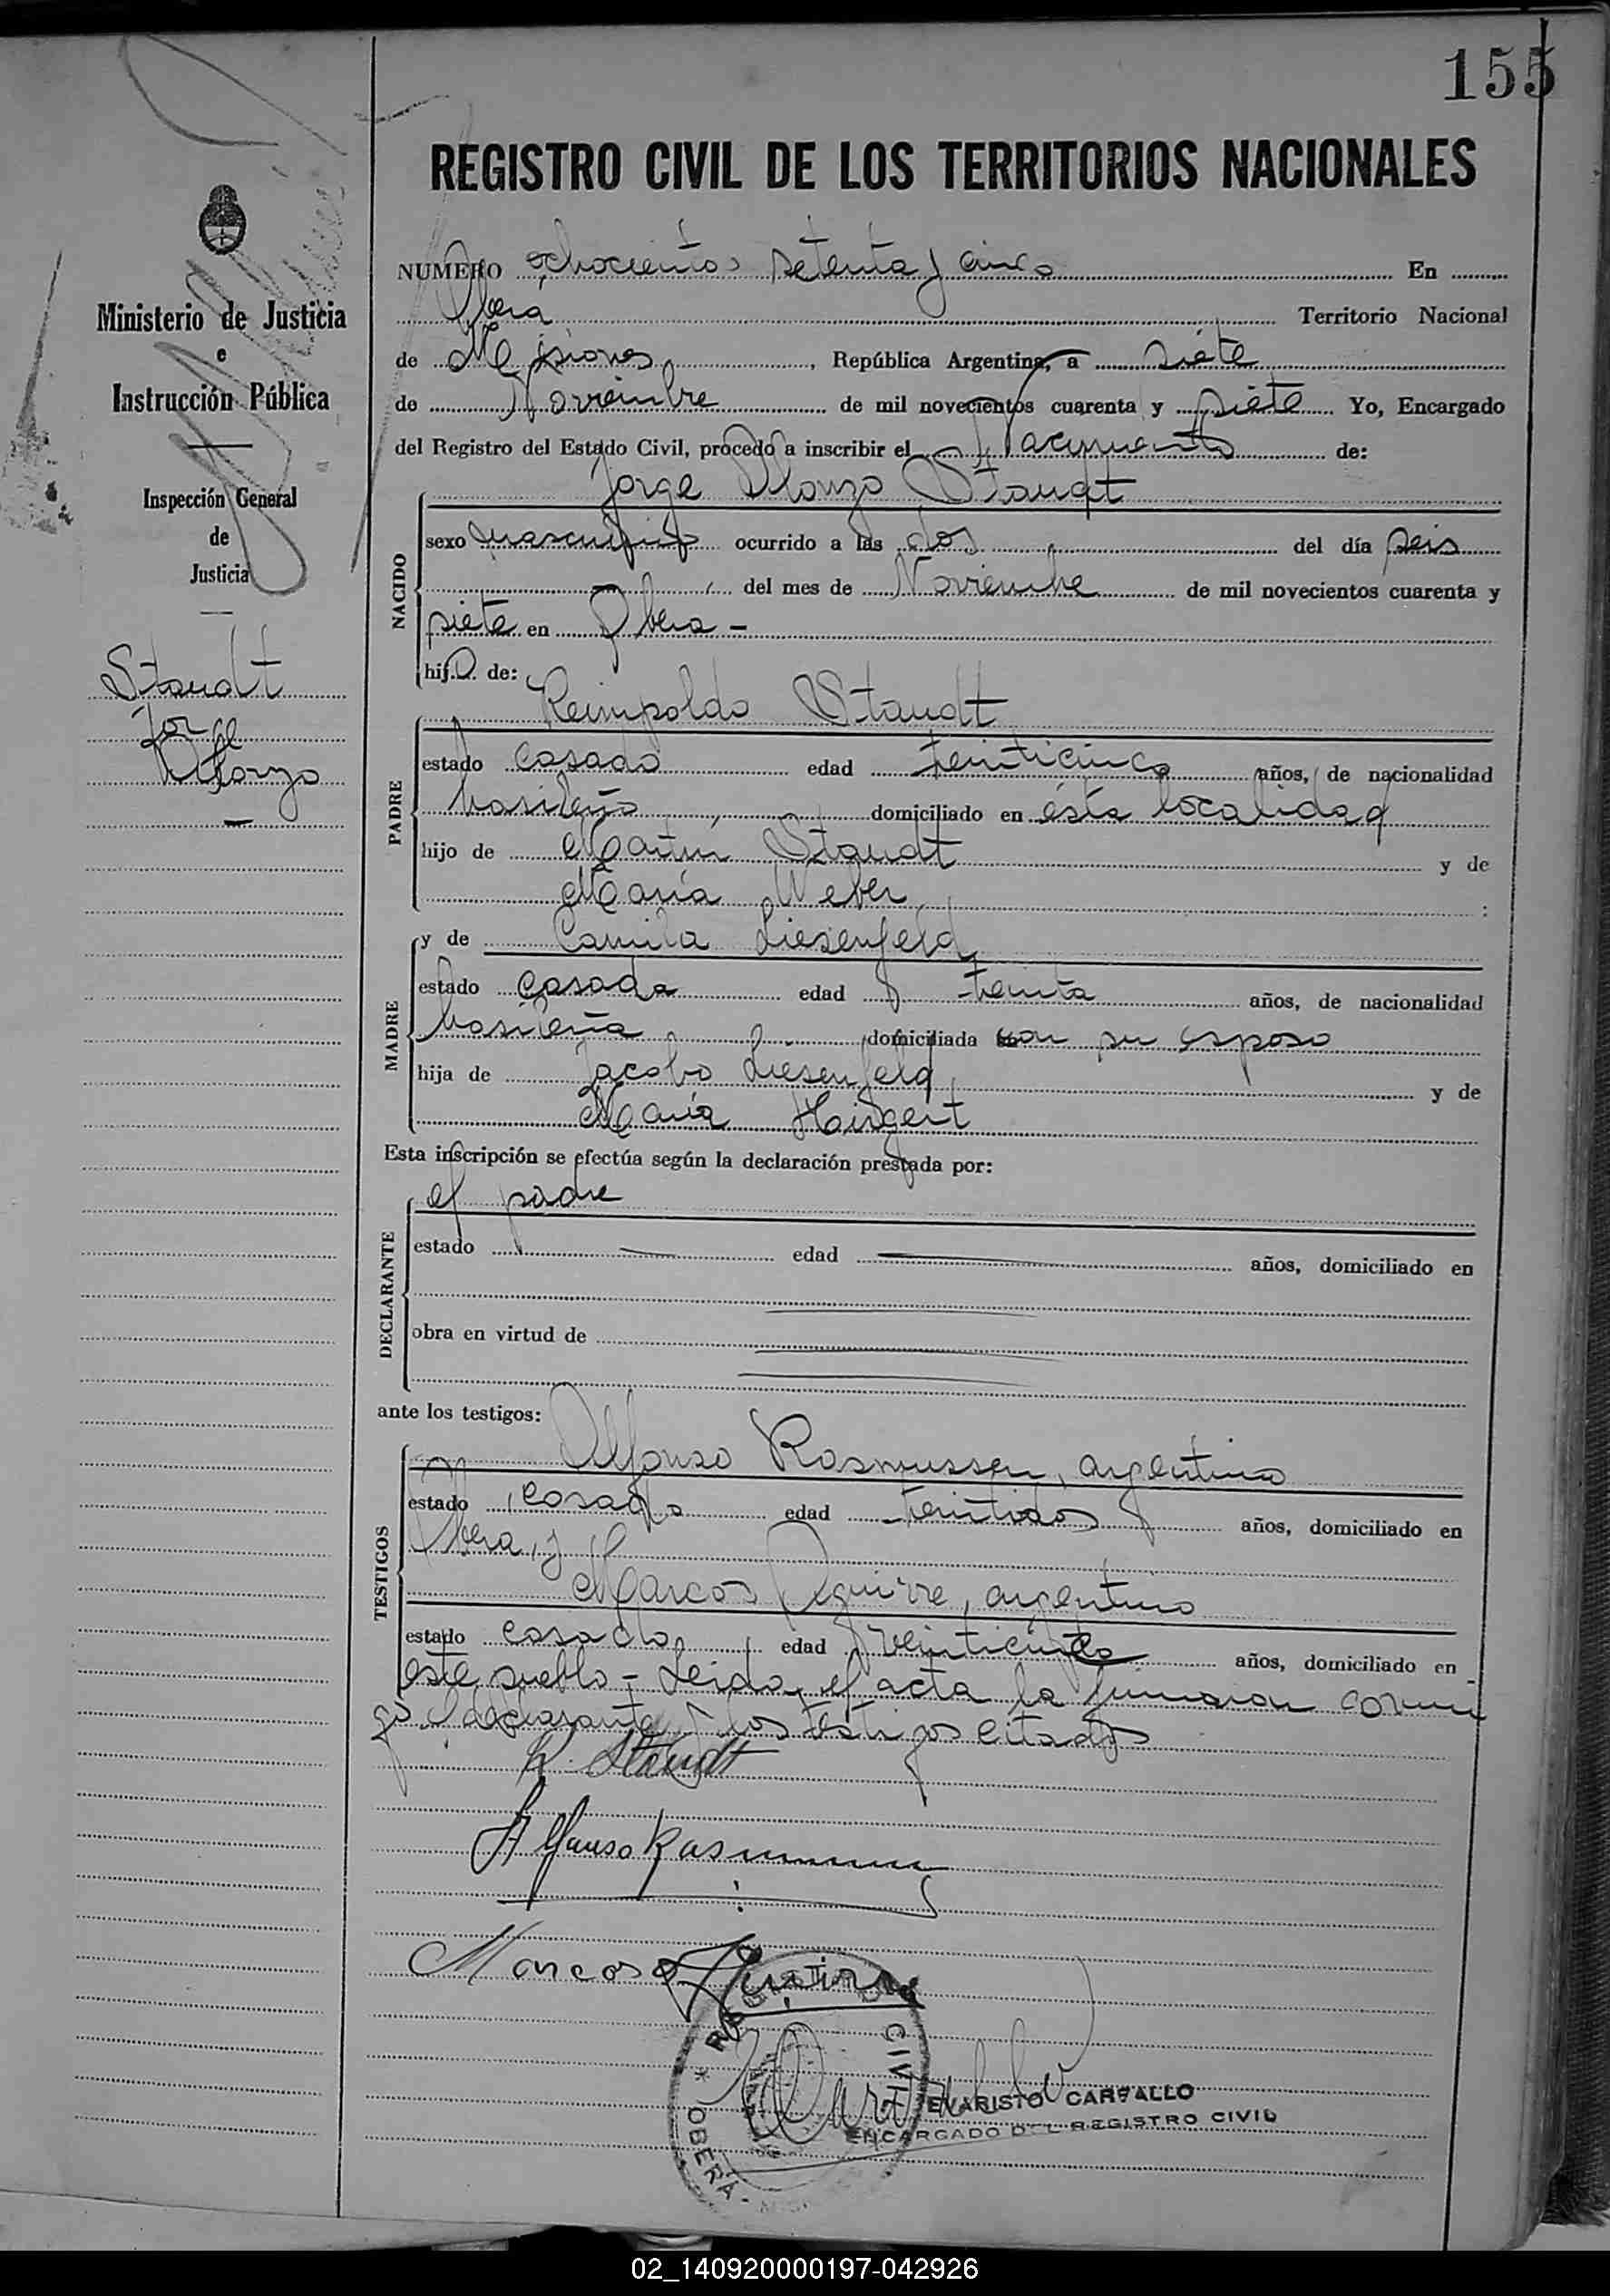 155
REGISTRO CIVIL DE LOS TERRITORIOS NACIONALES
NUMERO ochocientos setenta y cinco En
Obera Territorio Nacional
de Misiones, República Argentina, a siete
de Noviembre de mil novecientos cuarenta y siete Yo, Encargado
del Registro del Estado Civil, procedo a inscribir el Nacimiento de:
Ministerio de Justicia
e
Instrucción Pública
Inspección General
de
Justicia
Staudt
Jorge
Alonzo
NACIDO
Jorge Alonzo Staudt
sexo masculino ocurrido a las dos del día seis
del mes de Noviembre de mil novecientos cuarenta y
siete en Obera -
hijo de:
PADRE
Reimpoldo Staudt
estado casado edad treinticinco años, de nacionalidad
brasileño domiciliado en ésta localidad
hijo de Martin Staudt y de
María Weber :
MADRE
y de Camila Liesenfeld
estado casada edad treinta años, de nacionalidad
brasileña domiciliada con su esposo
hija de Jacobo Liesenfeld y de
María
Esta inscripción se efectúa según la declaración prestada por:
DECLARANTE
el padre
estado edad años, domiciliado en
obra en virtud de
ante los testigos:
TESTIGOS
Alfonso Rasmussen, argentino
estado casado edad treintidos años, domiciliado en
Obera, y
Marcos Aguirre, argentino
estado casado edad años, domiciliado en
este pueblo - Leida el acta la firmaron conmi
go el declarante y los testigos citados
R. Staudt
Alfonso Rasmussen
Marcos Aguirre
REGISTRO CIVIL * OBERÁ -
EVARISTO CARVALLO
ENCARGADO DEL REGISTRO CIVIL
02_140920000197-042926